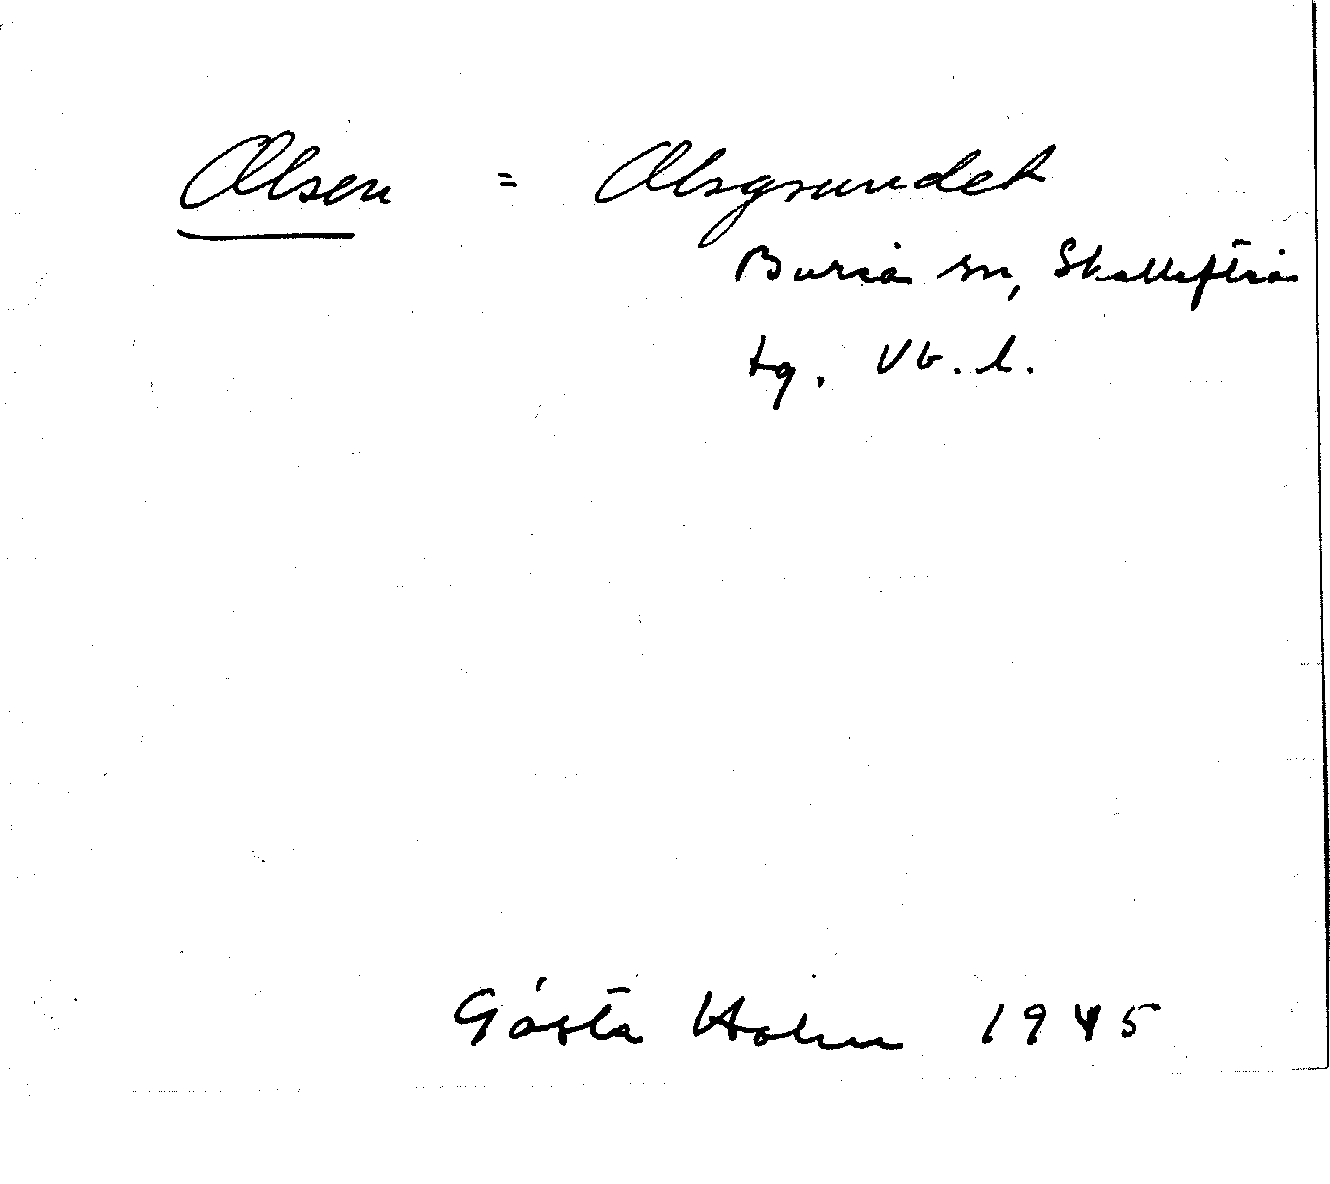 Olsen = Olsgrundet
Bureå sn, Skellefteå
tg. Vb. l.
Gösta Holm 1945